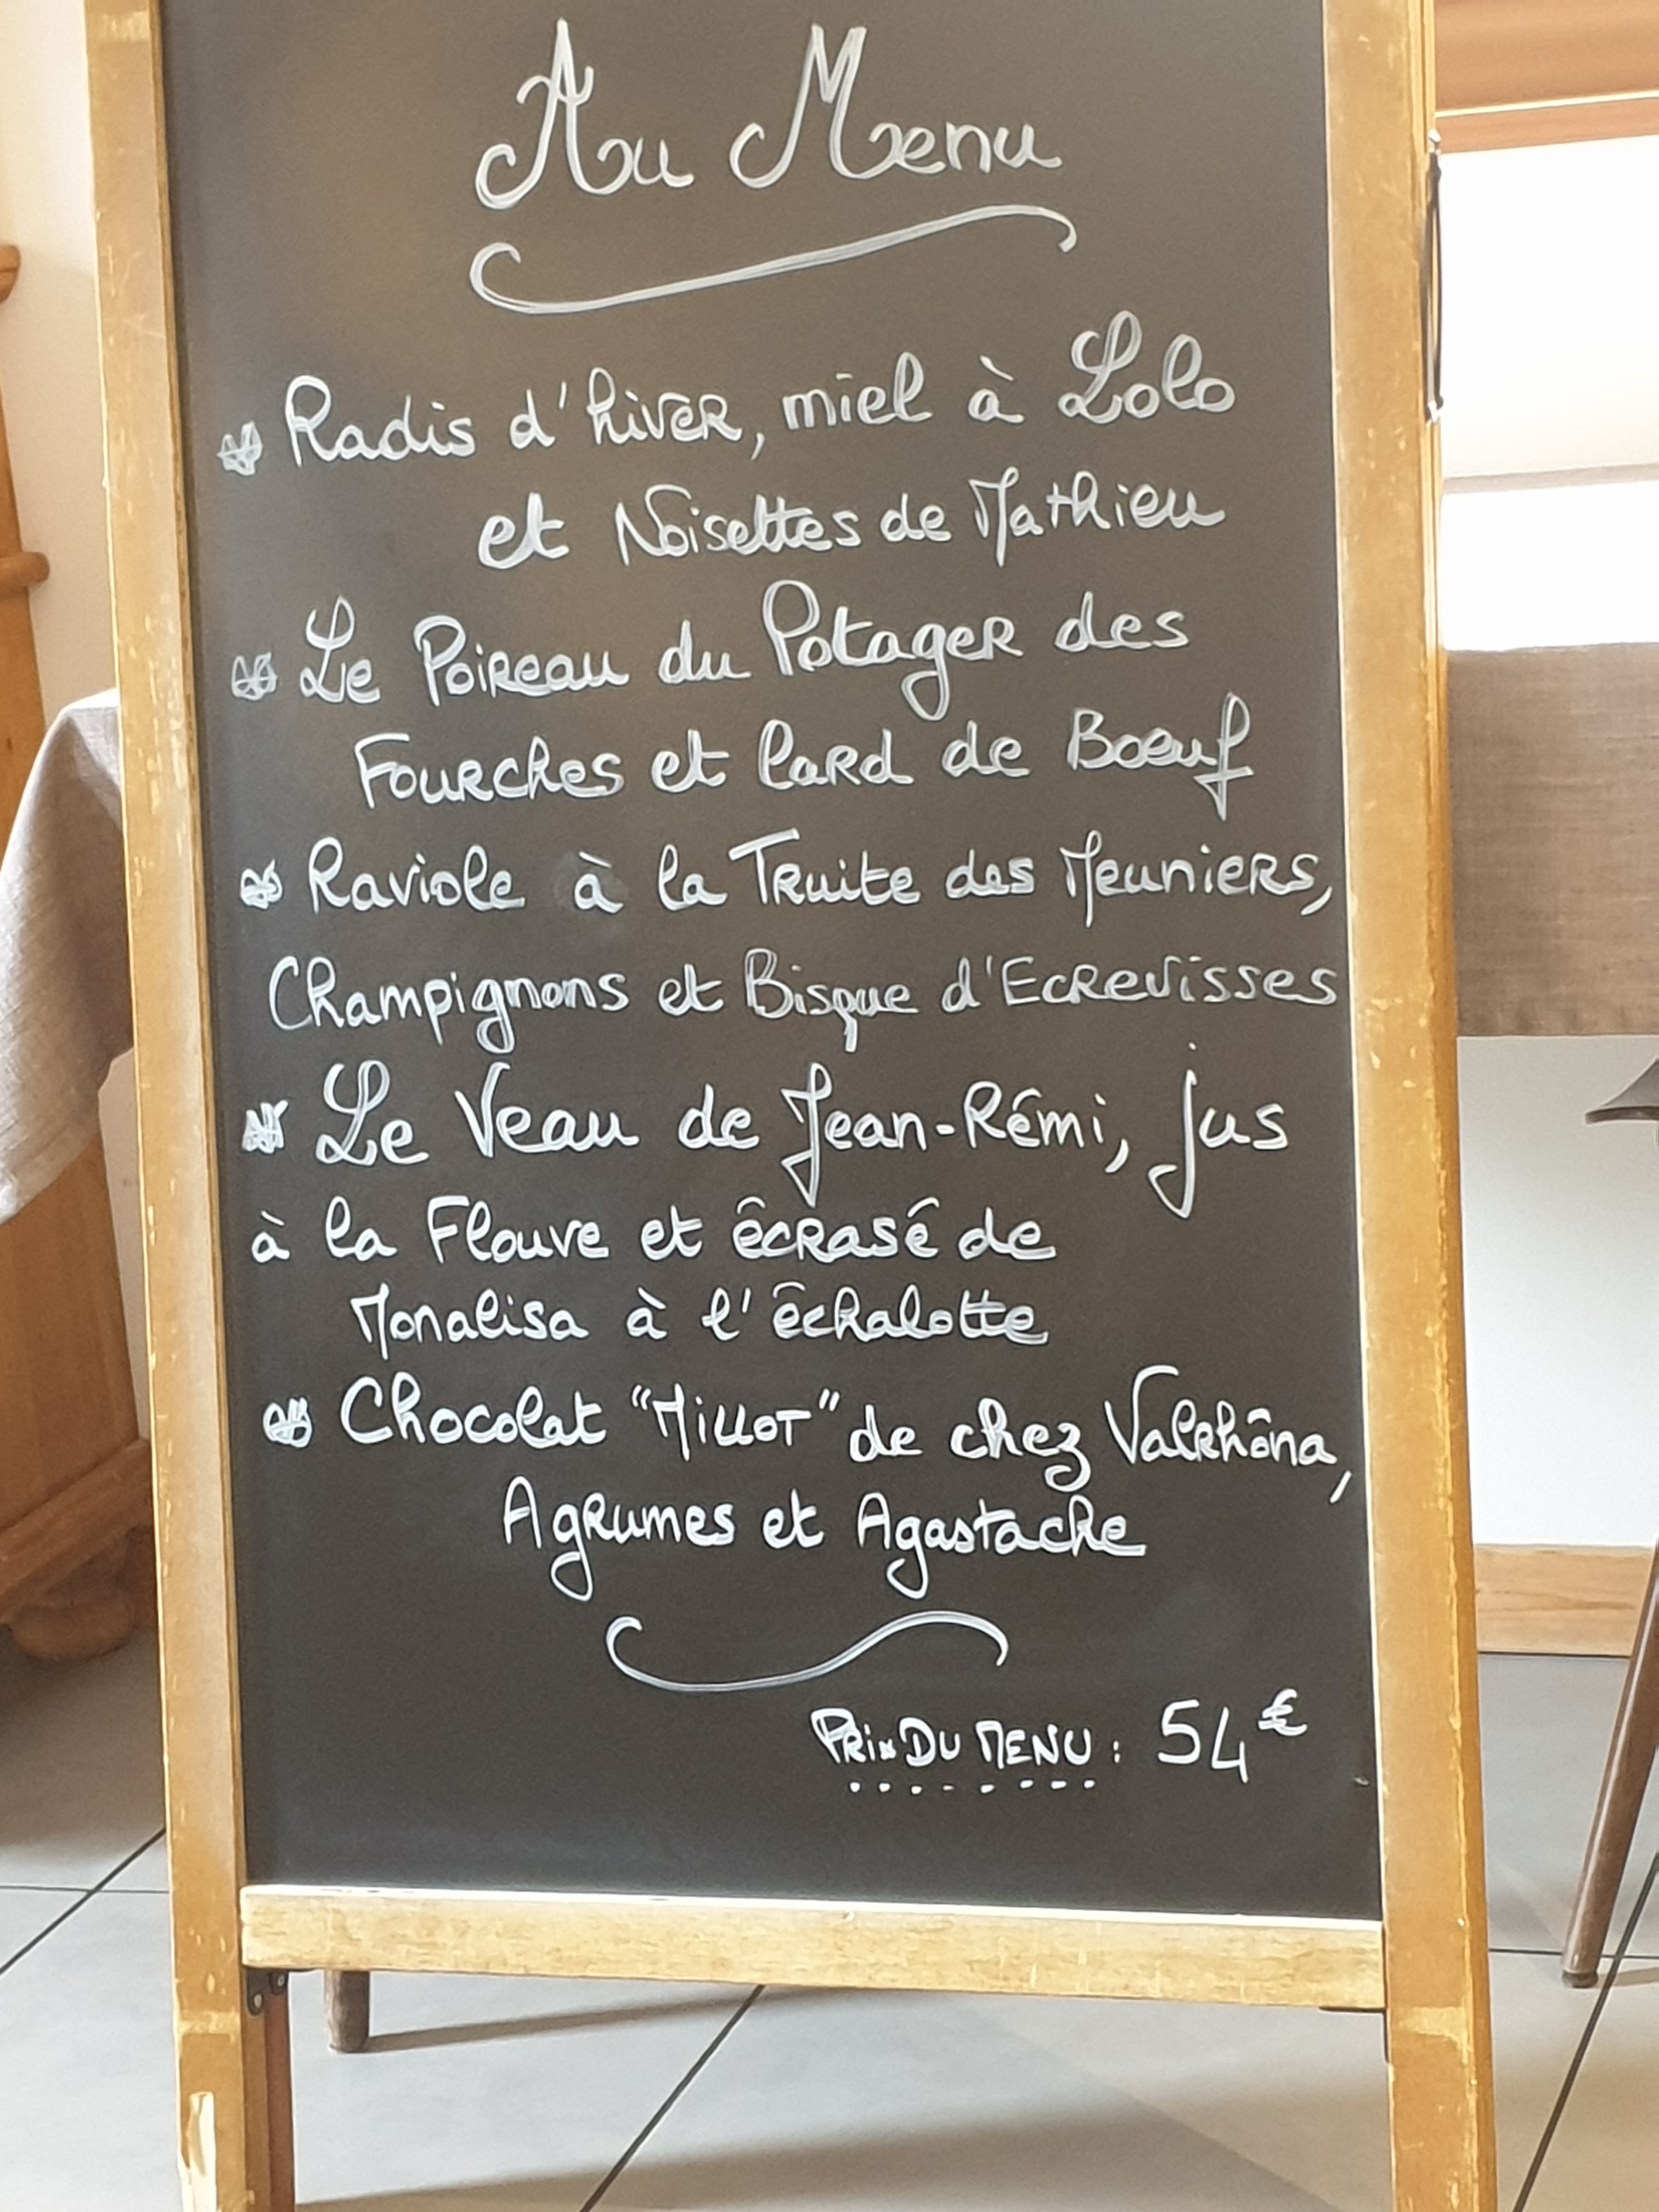 Au Menu
Radis d'hiver, miel à Lolo
et Noisettes de Mathieu
Le Poireau du Potager des
Fourches et lard de Boeuf
Raviole à la Truite des Meuniers,
Champignons et Bisque d'Ecrevisses
Le Veau de Jean-Rémi, jus
à la Flouve et êcrasé de
Monalisa à l'êchalotte
Chocolat "MILLOT" de chez Valrhôna,
Agrumes et Agastache
PRix DU MENU : 54€